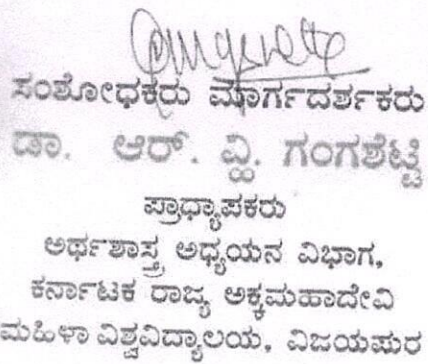 ಸಂಶೋಧಕರು ಮಾರ್ಗದರ್ಶಕರು
ಡಾ. ಆರ್. ವ್ಹಿ. ಗಂಗಶೆಟ್ಟಿ
ಪ್ರಾಧ್ಯಾಪಕರು
ಅರ್ಥಶಾಸ್ತ್ರ ಅಧ್ಯಯನ ವಿಭಾಗ,
ಕರ್ನಾಟಕ ರಾಜ್ಯ ಅಕ್ಕಮಹಾದೇವಿ
ಮಹಿಳಾ ವಿಶ್ವವಿದ್ಯಾಲಯ, ವಿಜಯಪುರ